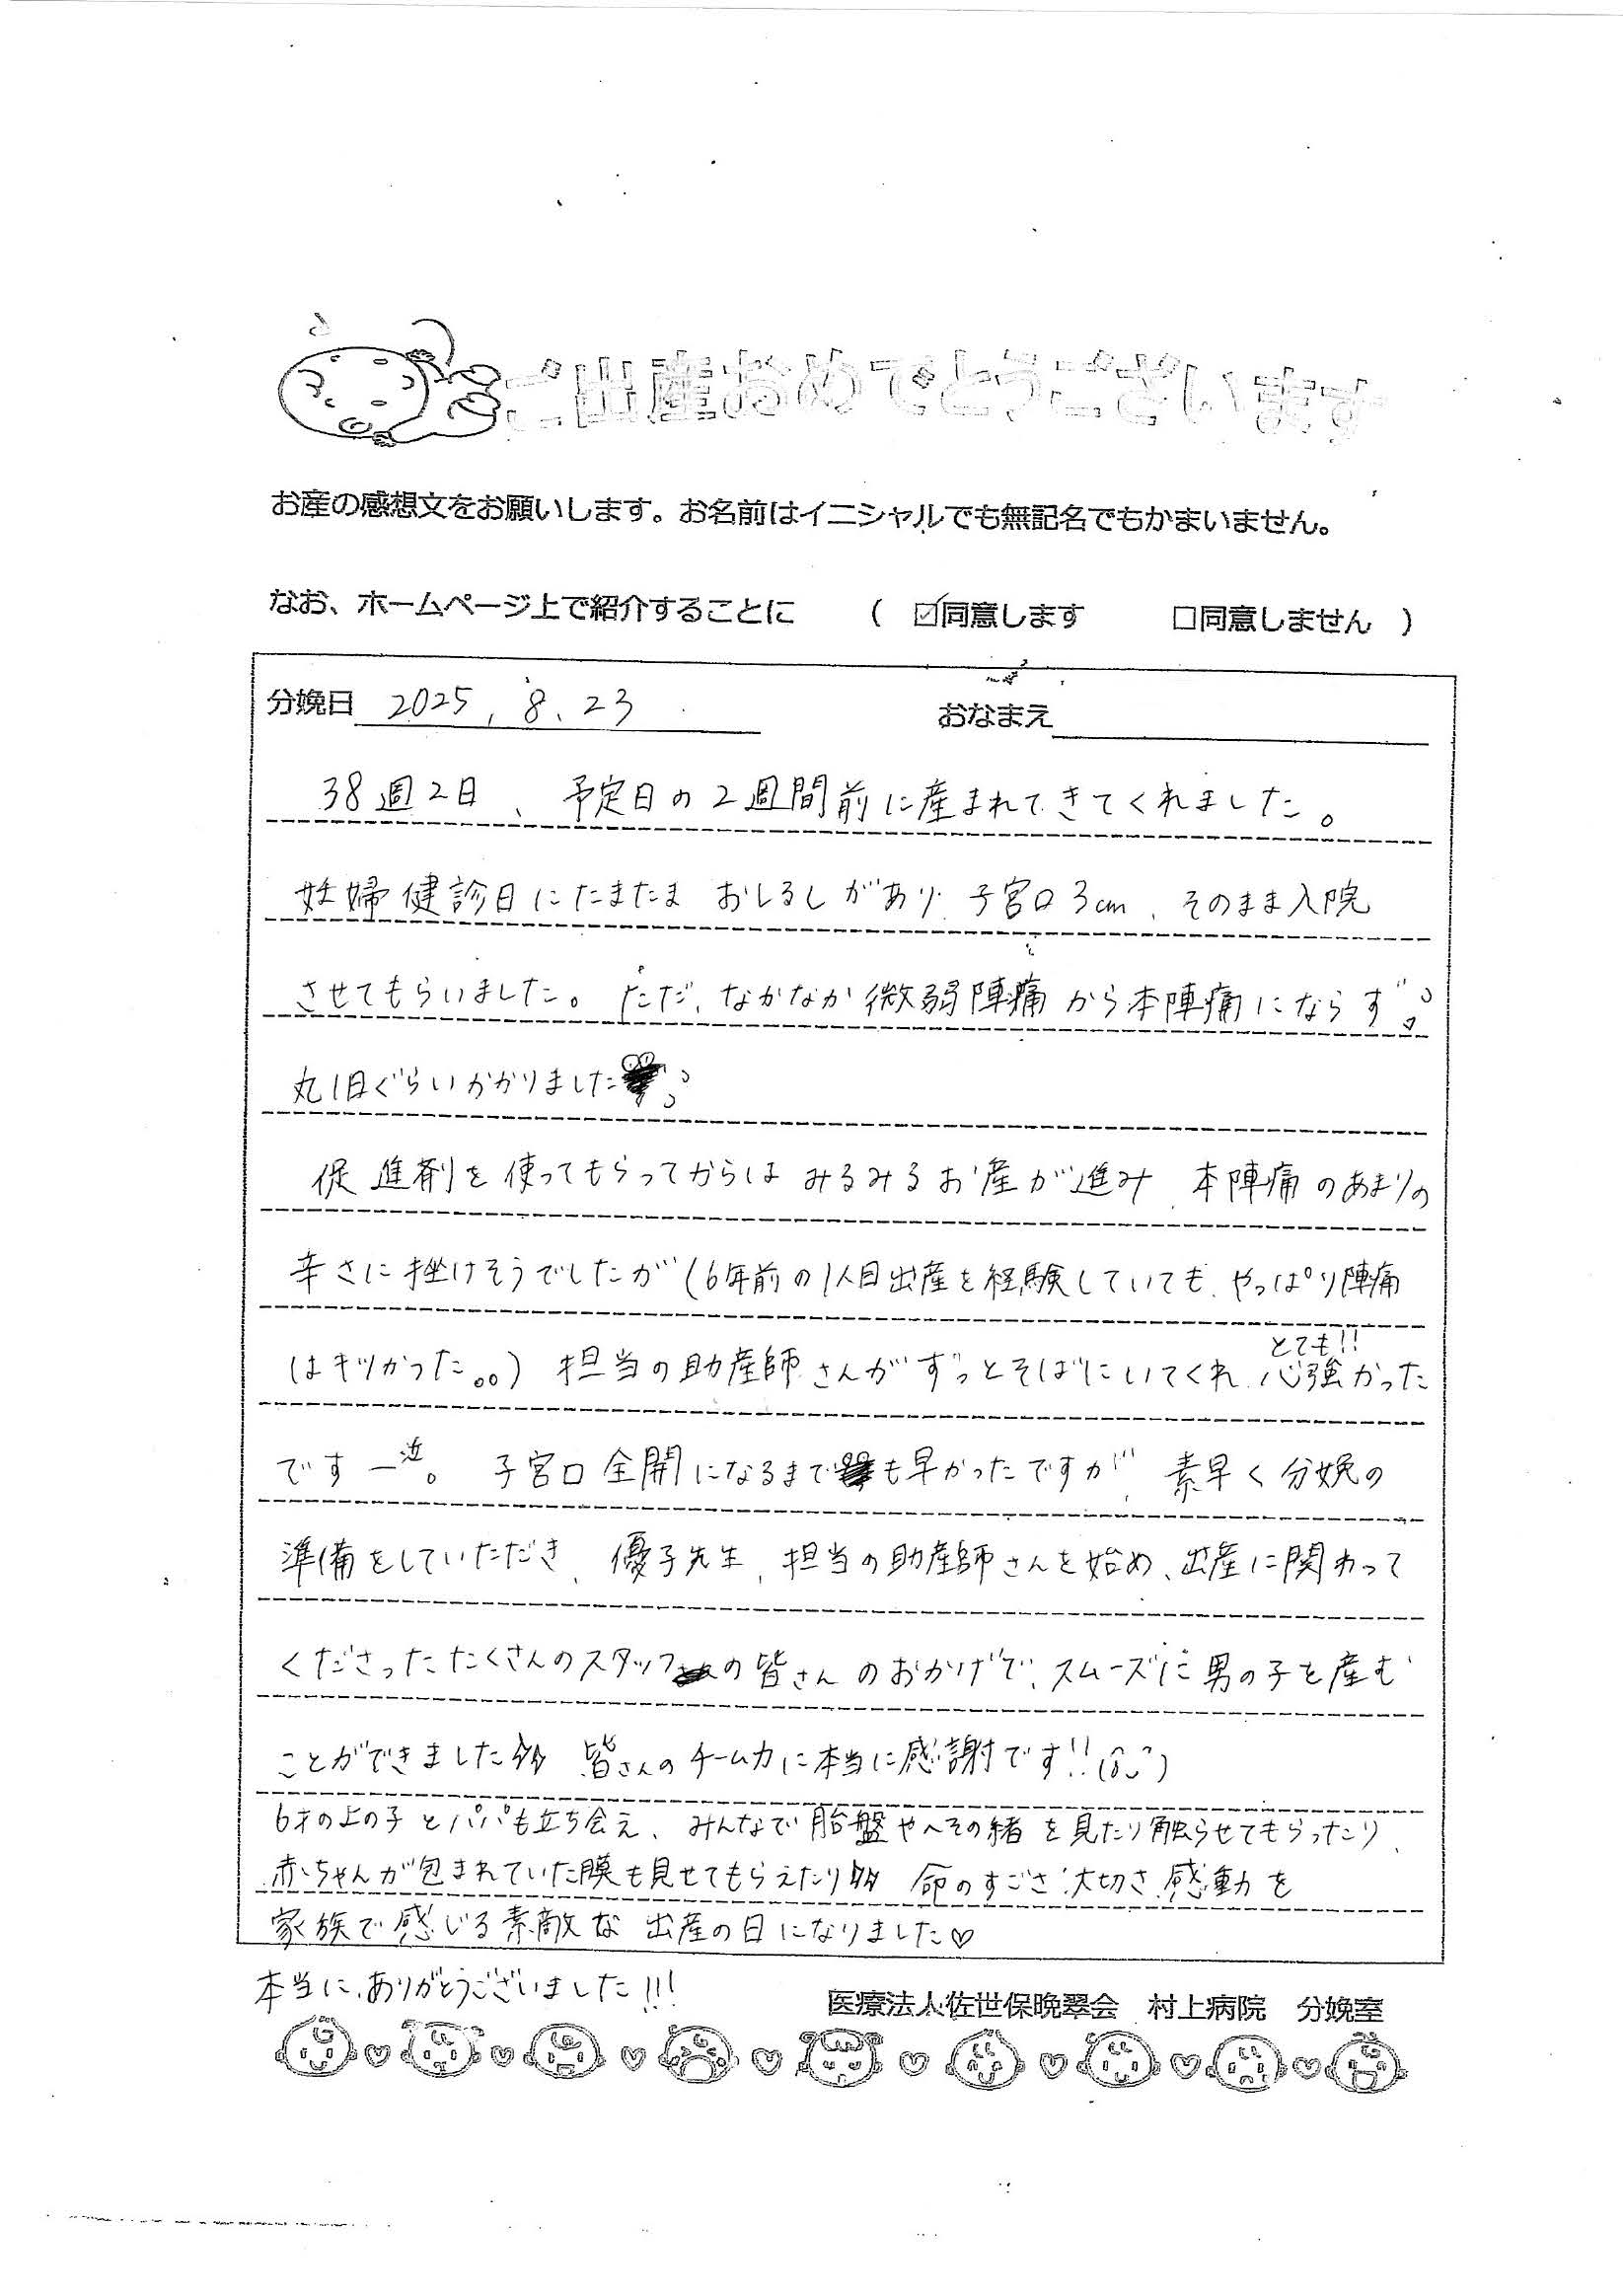 ご出産おめでとうございます
お産の感想文をお願いします。お名前はイニシャルでも無記名でもかまいません。
なお、ホームページ上で紹介することに （ ☑同意します □同意しません ）
分娩日 2025, 8, 23 おなまえ
38週2日、予定日の2週間前に産まれてきてくれました。
妊婦健診日にたまたま おしるしがあり、子宮口3cm、そのまま入院
させてもらいました。ただ、なかなか微弱陣痛から本陣痛にならず
丸1日ぐらいかかりました
促進剤を使ってもらってからは みるみるお産が進み、本陣痛のあまりの
辛さに挫けそうでしたが（6年前の1人目出産を経験していても、やっぱり陣痛
はキツかった。。）担当の助産師さんがずっとそばにいてくれ、とても!!心強かった
ですー泣。 子宮口全開になるまでも早かったですが、素早く分娩の
準備をしていただき、優子先生、担当の助産師さんを始め、出産に関わって
くださったたくさんのスタッフの皆さんのおかげで、スムーズに男の子を産む
ことができました 皆さんのチーム力に本当に感謝です!!
6才の上の子とパパも立ち会え、みんなで胎盤やへその緒を見たり触らせてもらったり、
赤ちゃんが包まれていた膜も見せてもらえたり 命のすごさ、大切さ、感動を
家族で感じる素敵な 出産の日になりました♡
本当に、ありがとうございました!!!
医療法人佐世保晩翠会 村上病院 分娩室